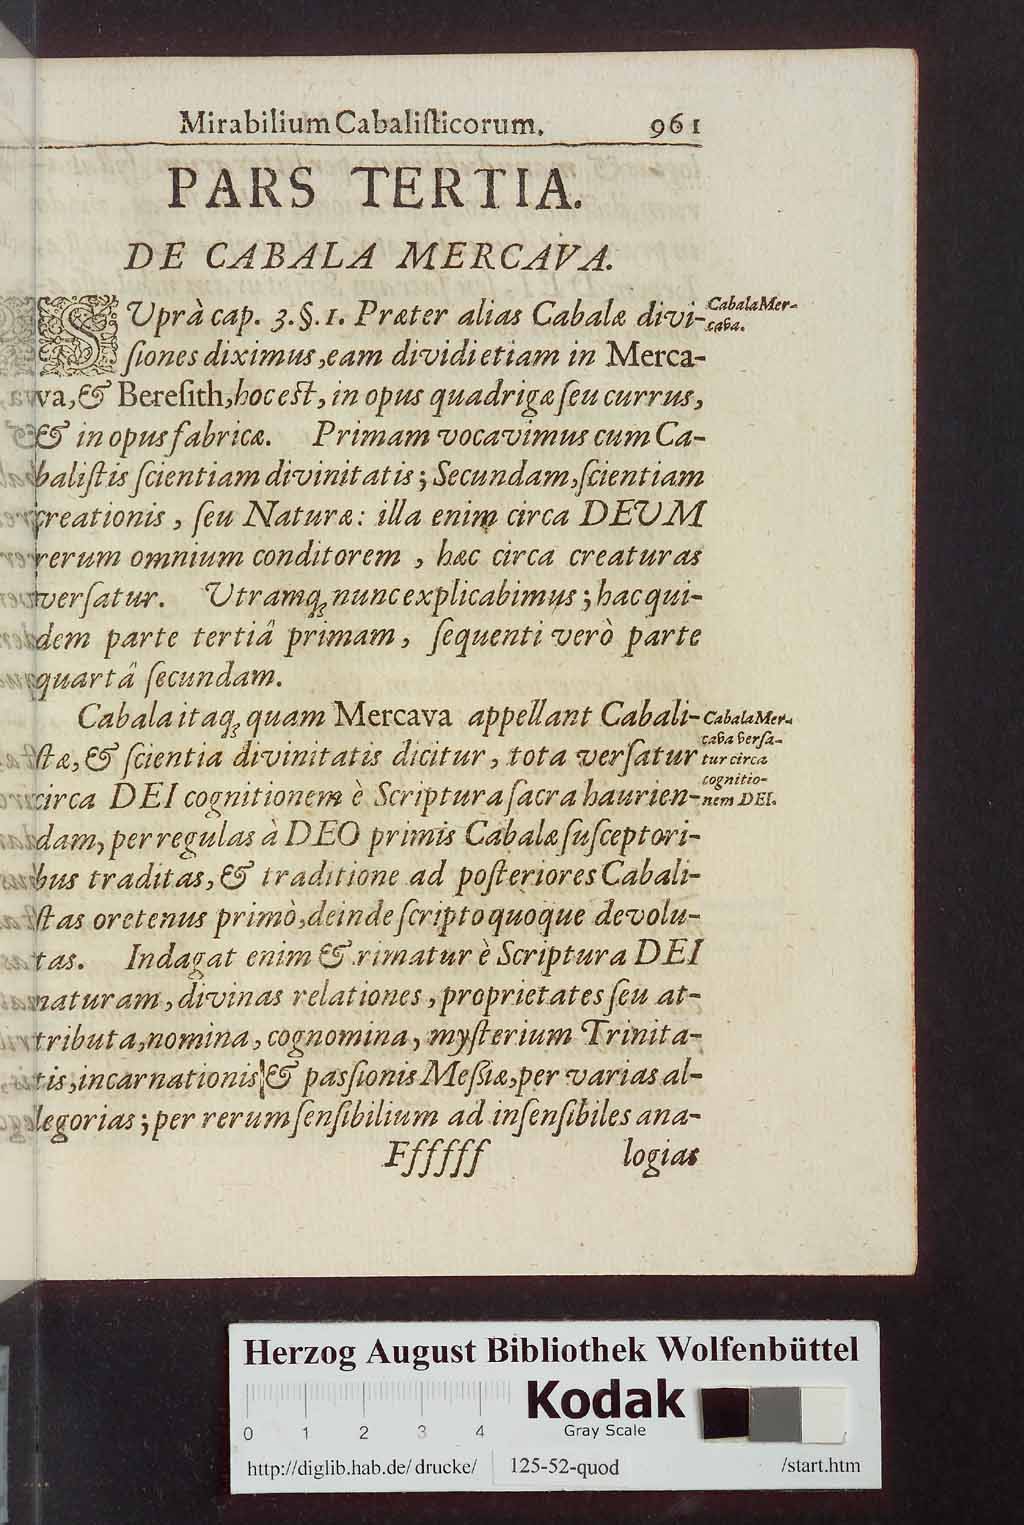 Mirabilium Cabaliſticorum. 961
PARS TERTIA.
DE CABALA MERCAVA.
SUprà cap. 3. §. 1. Præter alias Cabalæ divi-
ſiones diximus, eam dividi etiam in Merca-
va, & Bereſith, hoc eſt, in opus quadrigæ ſeu currus,
& in opus fabricæ. Primam vocavimus cum Ca-
baliſtis ſcientiam divinitatis; Secundam, ſcientiam
creationis, ſeu Naturæ: illa enim circa DEUM
rerum omnium conditorem, hæc circa creaturas
verſatur. Utramq; nunc explicabimus; hac qui-
dem parte tertiâ primam, ſequenti verò parte
quartâ ſecundam.
Cabala itaq; quam Mercava appellant Cabali-
ſtæ, & ſcientia divinitatis dicitur, tota verſatur
circa DEI cognitionem è Scriptura ſacra haurien-
dam, per regulas à DEO primis Cabalæ ſuſceptori-
bus traditas, & traditione ad poſteriores Cabali-
ſtas oretenus primò, deinde ſcripto quoque devolu-
tas. Indagat enim & rimatur è Scriptura DEI
naturam, divinas relationes, proprietates ſeu at-
tributa, nomina, cognomina, myſterium Trinita-
tis, incarnationis & paſſionis Meſſiæ, per varias al-
legorias; per rerum ſenſibilium ad inſenſibiles ana-
Ffffff logias
Cabala Mer-
cava.
Cabala Mer-
cava verſa-
tur circa
cognitio-
nem DEI.
Herzog August Bibliothek Wolfenbüttel
Kodak
Gray Scale
0 1 2 3 4
http://diglib.hab.de/drucke/ 125-52-quod /start.htm